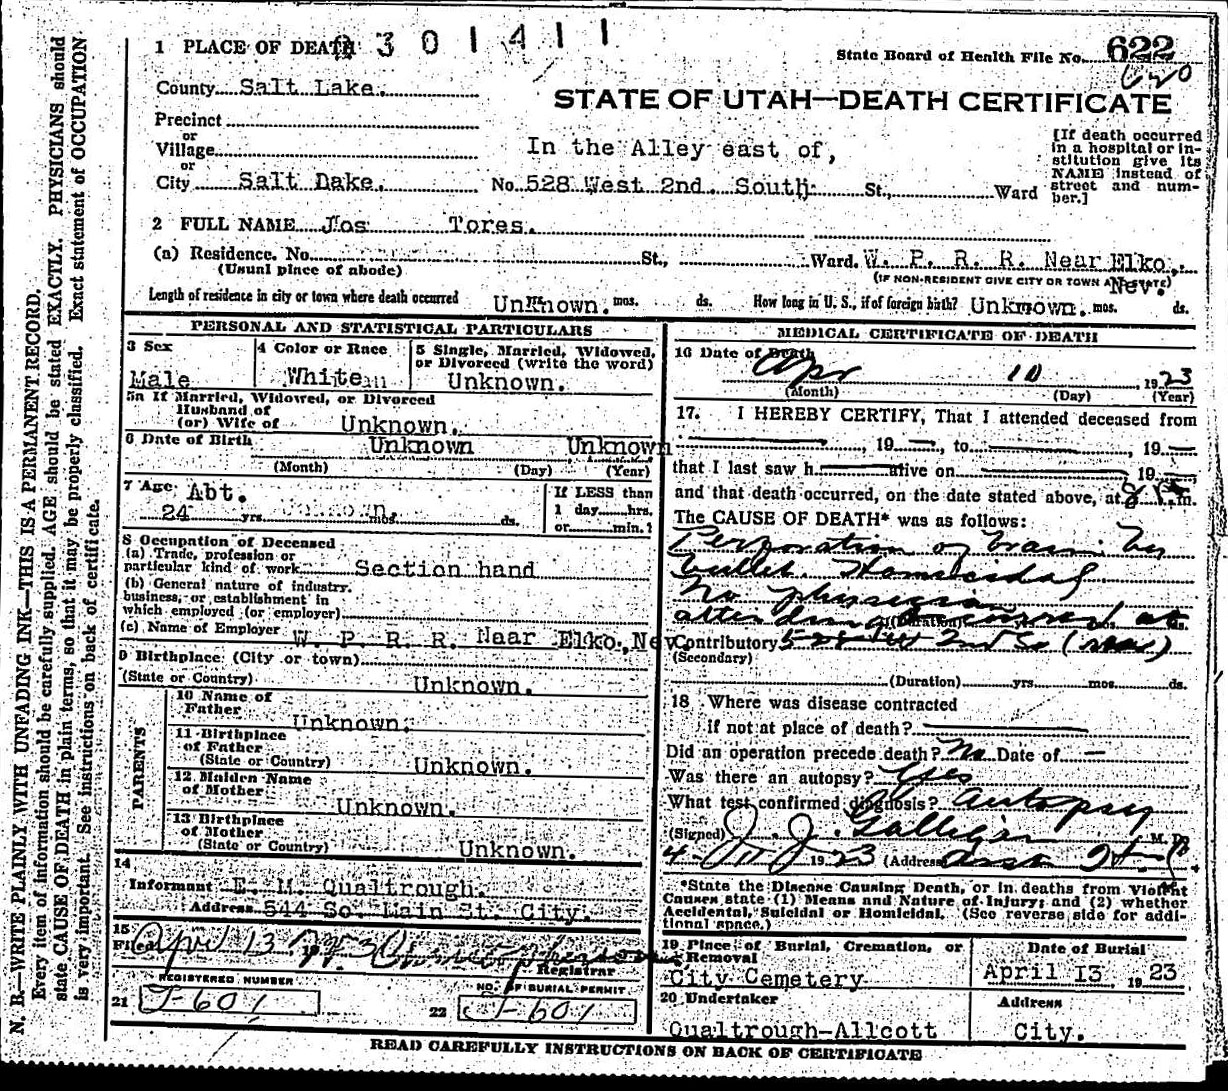 1 PLACE OF DEATH 2301411
State Board of Health File No. 622
620
County Salt Lake.
STATE OF UTAH—DEATH CERTIFICATE
Precinct
or
Village
or
City Salt Dake.
In the Alley east of,
No 528 West 2nd. South St., Ward
[If death occurred
in a hospital or in-
stitution give its
NAME instead of
street and num-
ber.]
2 FULL NAME Jos Tores.
(a) Residence. No. St., Ward. W. P. R. R. Near Elko,
(Usual place of abode)
(IF NON-RESIDENT GIVE CITY OR TOWN AND STATE)
Nev.
Length of residence in city or town where death occurred Unknown. mos. ds. How long in U. S., if of foreign birth? Unknown. mos. ds.
PERSONAL AND STATISTICAL PARTICULARS
3 Sex
Male
4 Color or Race
White
5 Single, Married, Widowed,
or Divorced (write the word)
Unknown.
5a If Married, Widowed, or Divorced
Husband of
(or) Wife of Unknown.
6 Date of Birth Unknown Unknown
(Month) (Day) (Year)
7 Age Abt.
24 yrs. Unknown. mos. ds.
If LESS than
1 day hrs.
or min.?
8 Occupation of Deceased
(a) Trade, profession or
particular kind of work Section hand
(b) General nature of industry,
business, or establishment in
which employed (or employer)
(c) Name of Employer W P. R. R. Near Elko, Nev
9 Birthplace (City or town)
(State or Country) Unknown.
PARENTS
10 Name of
Father
Unknown.
11 Birthplace
of Father
(State or Country) Unknown.
12 Maiden Name
of Mother
Unknown.
13 Birthplace
of Mother
(State or Country) Unknown.
14
Informant E. M. Qualtrough.
Address 544 So. Main St. City.
15
Filed April 13
Registrar
REGISTERED NUMBER
21 J-601
NO. OF BURIAL PERMIT
22 J-601
MEDICAL CERTIFICATE OF DEATH
16 Date of Death
Apr 10, 1923
(Month) (Day) (Year)
17. I HEREBY CERTIFY, That I attended deceased from
, 19 , to , 19
that I last saw h alive on 19
and that death occurred, on the date stated above, at 8 P. m.
The CAUSE OF DEATH* was as follows:
Perforation of brain by
bullet. Homicidal
No physician
attending occurred at
(Duration) ds.
Contributory 528 W 2nd So (rear)
(Secondary)
(Duration) yrs. mos. ds.
18 Where was disease contracted
if not at place of death?
Did an operation precede death? No Date of —
Was there an autopsy? Yes
What test confirmed diagnosis? Autopsy
(Signed) J. J. Galligan M. D.
1923 (Address
*State the Disease Causing Death, or in deaths from Violent
Causes, state (1) Means and Nature of Injury; and (2) whether
Accidental, Suicidal or Homicidal. (See reverse side for addi-
tional space.)
19 Place of Burial, Cremation, or
Removal
City Cemetery
Date of Burial
April 13 1923
20 Undertaker
Qualtrough-Allcott
Address
City.
READ CAREFULLY INSTRUCTIONS ON BACK OF CERTIFICATE
N. B.—WRITE PLAINLY WITH UNFADING INK—THIS IS A PERMANENT RECORD.
Every item of information should be carefully supplied. AGE should be stated EXACTLY. PHYSICIANS should
state CAUSE OF DEATH in plain terms, so that it may be properly classified. Exact statement of OCCUPATION
is very important. See instructions on back of certificate.